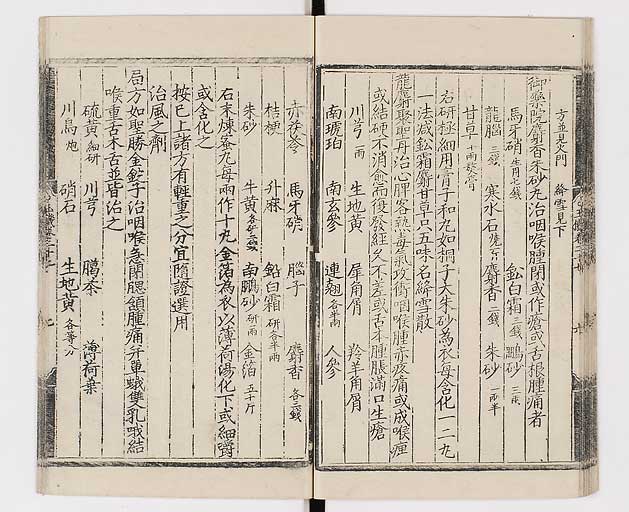 方並見火門 絳雪見下
御藥院麝香朱砂丸治咽喉腫閉或作瘡或舌根腫痛者
馬牙硝 生月七錢 鈆白霜 三錢 鵬砂 三戔
龍腦 三錢 寒水石 燒 麝香 二錢 朱砂 一兩半
甘草 十兩熬膏
右研極細用膏子和丸如桐子大朱砂為衣每含化一二丸
一法减鈆霜麝甘草只五味名絳雪散
龍麝聚聖丹治心脾客熱毒氣攻衝咽喉腫赤疼痛或成喉痺
或結硬不消愈而復發經久不差或舌本腫脹滿口生瘡
川芎 一兩 生地黃 犀角屑 羚羊角屑
南琥珀 南玄參 連翹 各半兩 人參
赤茯苓 馬牙硝 腦子 麝香 各三錢
桔梗 升麻 鈆白霜 研各半兩
朱砂 牛黃 各研二錢 南鵬砂 研一兩 金箔 五十斤
右末煉蜜丸每兩作十丸金箔為衣以薄荷湯化下或細嚼
或含化之
按已上諸方有輕重之分宜隨證選用
治風之劑
局方如聖勝金鋌子治咽喉急閉腮頷腫痛并單蛾雙乳哦結
喉重舌木舌並皆治之
硫黃 細研 川芎 臈茶 薄荷葉
川烏 炮 硝石 生地黃 各等分